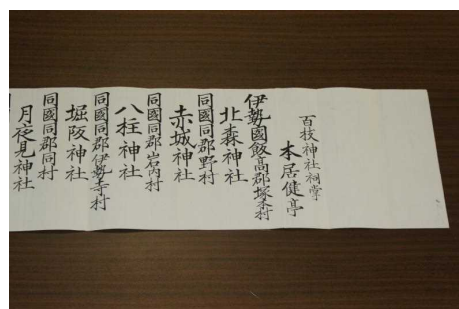 百枝神社祠掌
本居健亭
伊勢國飯高郡塚本村
北森神社
同國同郡野村
赤城神社
同國同郡岩内村
八柱神社
同國同郡伊勢寺村
堀阪神社
同國同郡同村
月夜見神社